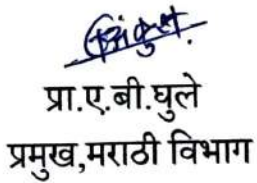 प्रा.ए.बी.घुले
प्रमुख,मराठी विभाग